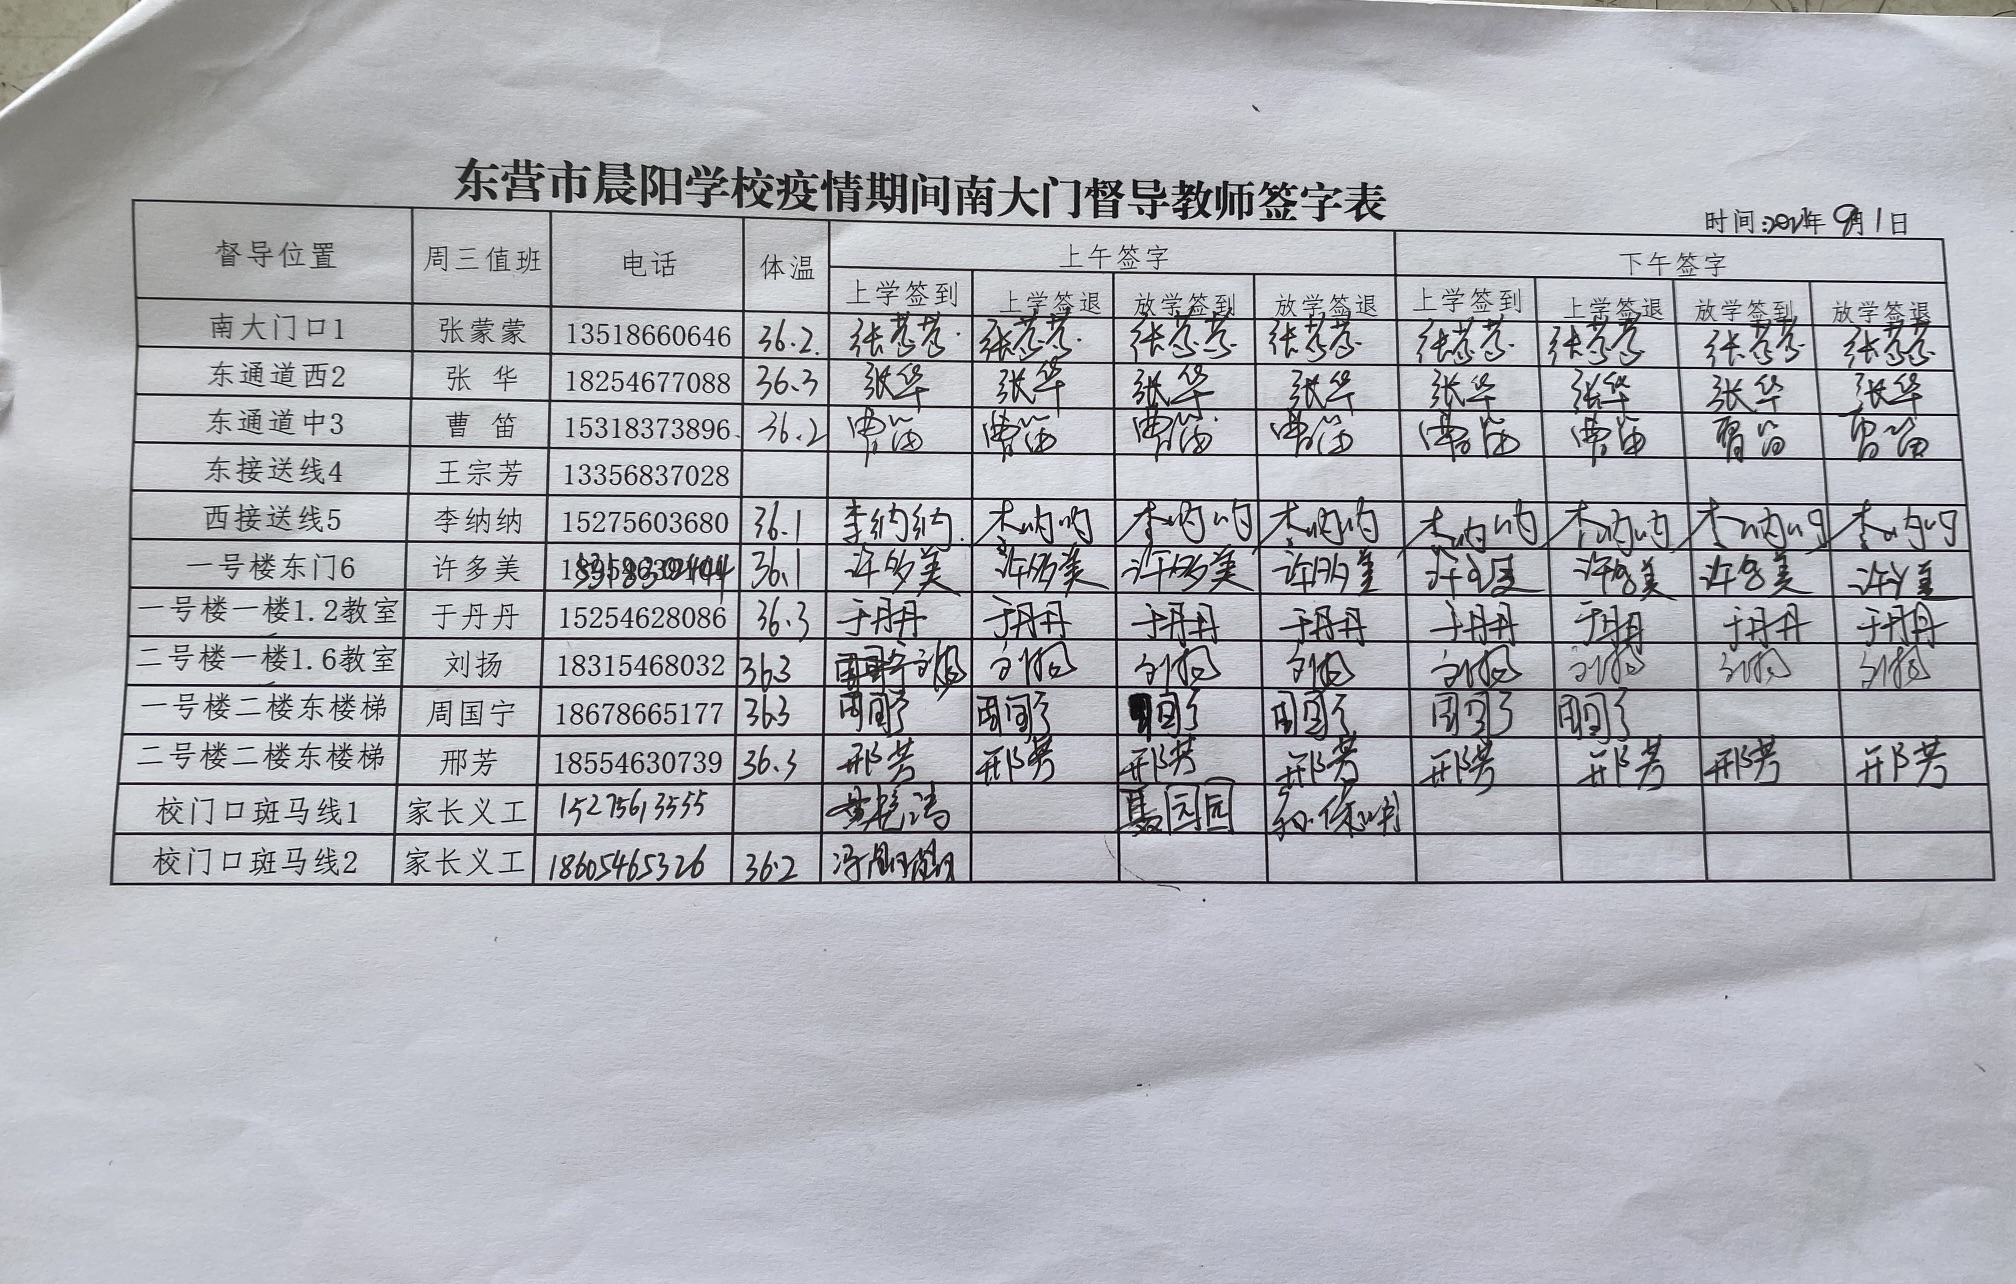 东营市晨阳学校疫情期间南大门督导教师签字表
时间:2021年 9月1日
督导位置 周三值班 电话 体温 上午签字 下午签字
上学签到 上学签退 放学签到 放学签退 上学签到 上学签退 放学签到 放学签退
南大门口1 张蒙蒙 13518660646 36.2 张蒙蒙 张蒙蒙 张蒙蒙 张蒙蒙 张蒙蒙 张蒙蒙 张蒙蒙 张蒙蒙
东通道西2 张 华 18254677088 36.3 张华 张华 张华 张华 张华 张华 张华 张华
东通道中3 曹 笛 15318373896 36.2 曹笛 曹笛 曹笛 曹笛 曹笛 曹笛 曹笛 曹笛
东接送线4 王宗芳 13356837028
西接送线5 李纳纳 15275603680 36.1 李纳纳 李纳纳 李纳纳 李纳纳 李纳纳 李纳纳 李纳纳 李纳纳
一号楼东门6 许多美 36.1 许多美 许多美 许多美 许多美 许多美 许多美 许多美 许多美
一号楼一楼1.2教室 于丹丹 15254628086 36.3 于丹丹 于丹丹 于丹丹 于丹丹 于丹丹 于丹丹 于丹丹 于丹丹
二号楼一楼1.6教室 刘扬 18315468032 36.3 刘扬 刘扬 刘扬 刘扬 刘扬 刘扬 刘扬 刘扬
一号楼二楼东楼梯 周国宁 18678665177 36.3 周国宁 周国宁 周国宁 周国宁 周国宁 周国宁
二号楼二楼东楼梯 邢芳 18554630739 36.3 邢芳 邢芳 邢芳 邢芳 邢芳 邢芳 邢芳 邢芳
校门口斑马线1 家长义工 15275613555 聂园园
校门口斑马线2 家长义工 18605465326 36.2